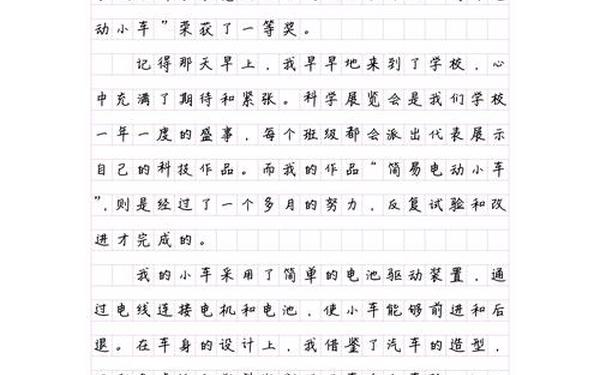 动小车”荣获了一等奖。
记得那天早上，我早早地来到了学校，心
中充满了期待和紧张。科学展览会是我们学校
一年一度的盛事，每个班级都会派出代表展示
自己的科技作品。而我的作品“简易电动小车
”，则是经过了一个多月的努力，反复试验和改
进才完成的。
我的小车采用了简单的电池驱动装置，通
过电线连接电机和电池，使小车能够前进和后
退。在车身的设计上，我借鉴了汽车的造型，